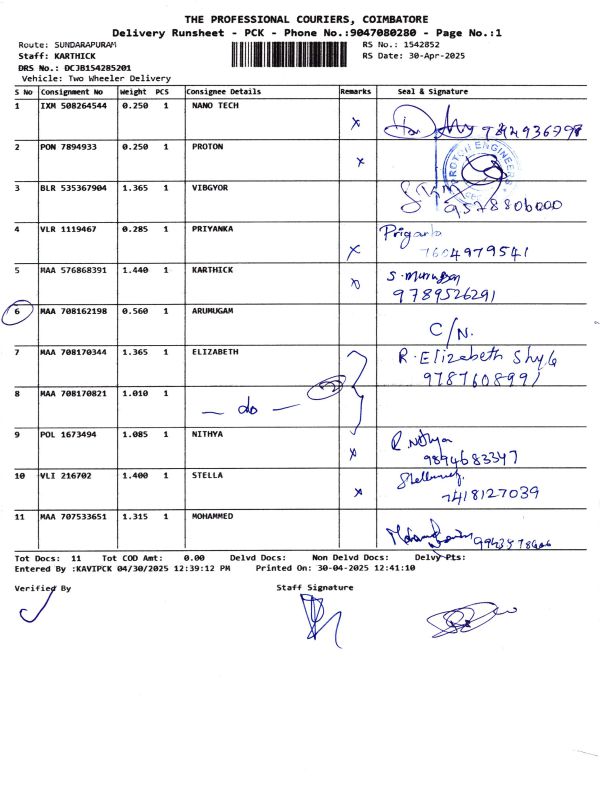 THE PROFESSIONAL COURIERS, COIMBATORE
Delivery Runsheet - PCK - Phone No.:9047080280 - Page No.:1
Route: SUNDARAPURAM RS No.: 1542852
Staff: KARTHICK RS Date: 30-Apr-2025
DRS No.: DCJB154285201
Vehicle: Two Wheeler Delivery
S No Consignment No Weight PCS Consignee Details Remarks Seal & Signature
1 IXM 508264544 0.250 1 NANO TECH
x
2 PON 7894933 0.250 1 PROTON
x PROTON ENGINEERS
3 BLR 535367904 1.365 1 VIBGYOR
9578806000
4 VLR 1119467 0.285 1 PRIYANKA Priyanka
x 7604979541
5 MAA 576868391 1.440 1 KARTHICK S. Murugan
9789526291
6 MAA 708162198 0.560 1 ARUMUGAM
C/N.
7 MAA 708170344 1.365 1 ELIZABETH R. Elizabeth
9787608991
8 MAA 708170821 1.010 1
— do —
9 POL 1673494 1.085 1 NITHYA R. Nithya
x 9894683347
10 VLI 216702 1.400 1 STELLA
x 7418127039
11 MAA 707533651 1.315 1 MOHAMMED
Tot Docs: 11 Tot COD Amt: 0.00 Delvd Docs: Non Delvd Docs: Delvy Pts:
Entered By :KAVIPCK 04/30/2025 12:39:12 PM Printed On: 30-04-2025 12:41:10
Verified By Staff Signature